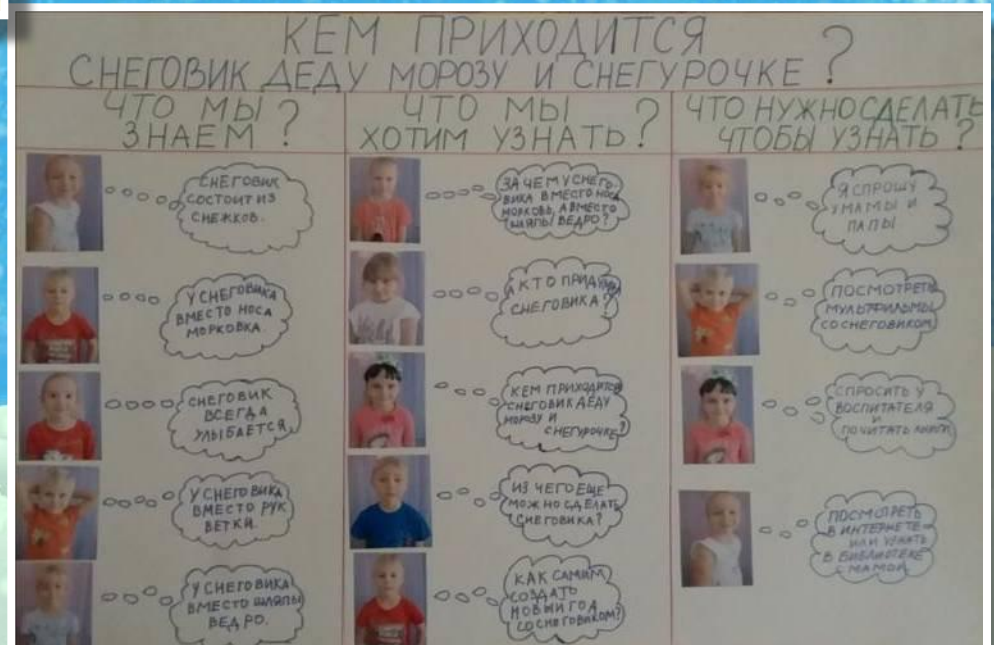 КЕМ ПРИХОДИТСЯ
СНЕГОВИК ДЕДУ МОРОЗУ И СНЕГУРОЧКЕ?
ЧТО МЫ
ЗНАЕМ?
СНЕГОВИК
СОСТОИТ ИЗ
СНЕЖКОВ.
У СНЕГОВИКА
ВМЕСТО НОСА
МОРКОВКА.
СНЕГОВИК
ВСЕГДА
УЛЫБАЕТСЯ.
У СНЕГОВИКА
ВМЕСТО РУК
ВЕТКИ.
У СНЕГОВИКА
ВМЕСТО ШЛЯПЫ
ВЕДРО.
ЧТО МЫ
ХОТИМ УЗНАТЬ?
ЗАЧЕМ У СНЕГО-
ВИКА ВМЕСТО НОСА
МОРКОВЬ, А ВМЕСТО
ШЛЯПЫ ВЕДРО?
А КТО ПРИДУМАЛ
СНЕГОВИКА?
КЕМ ПРИХОДИТСЯ
СНЕГОВИК ДЕДУ
МОРОЗУ И
СНЕГУРОЧКЕ?
ИЗ ЧЕГО ЕЩЕ
МОЖНО СДЕЛАТЬ
СНЕГОВИКА?
КАК САМИМ
СОЗДАТЬ
НОВЫЙ ГОД
СО СНЕГОВИКОМ?
ЧТО НУЖНО СДЕЛАТЬ
ЧТОБЫ УЗНАТЬ?
Я СПРОШУ
У МАМЫ И
ПАПЫ
ПОСМОТРЕТЬ
МУЛЬТФИЛЬМЫ
СО СНЕГОВИКОМ
СПРОСИТЬ У
ВОСПИТАТЕЛЯ
И
ПОЧИТАТЬ КНИГИ
ПОСМОТРЕТЬ
В ИНТЕРНЕТЕ
ИЛИ УЗНАТЬ
В БИБЛИОТЕКЕ
С МАМОЙ